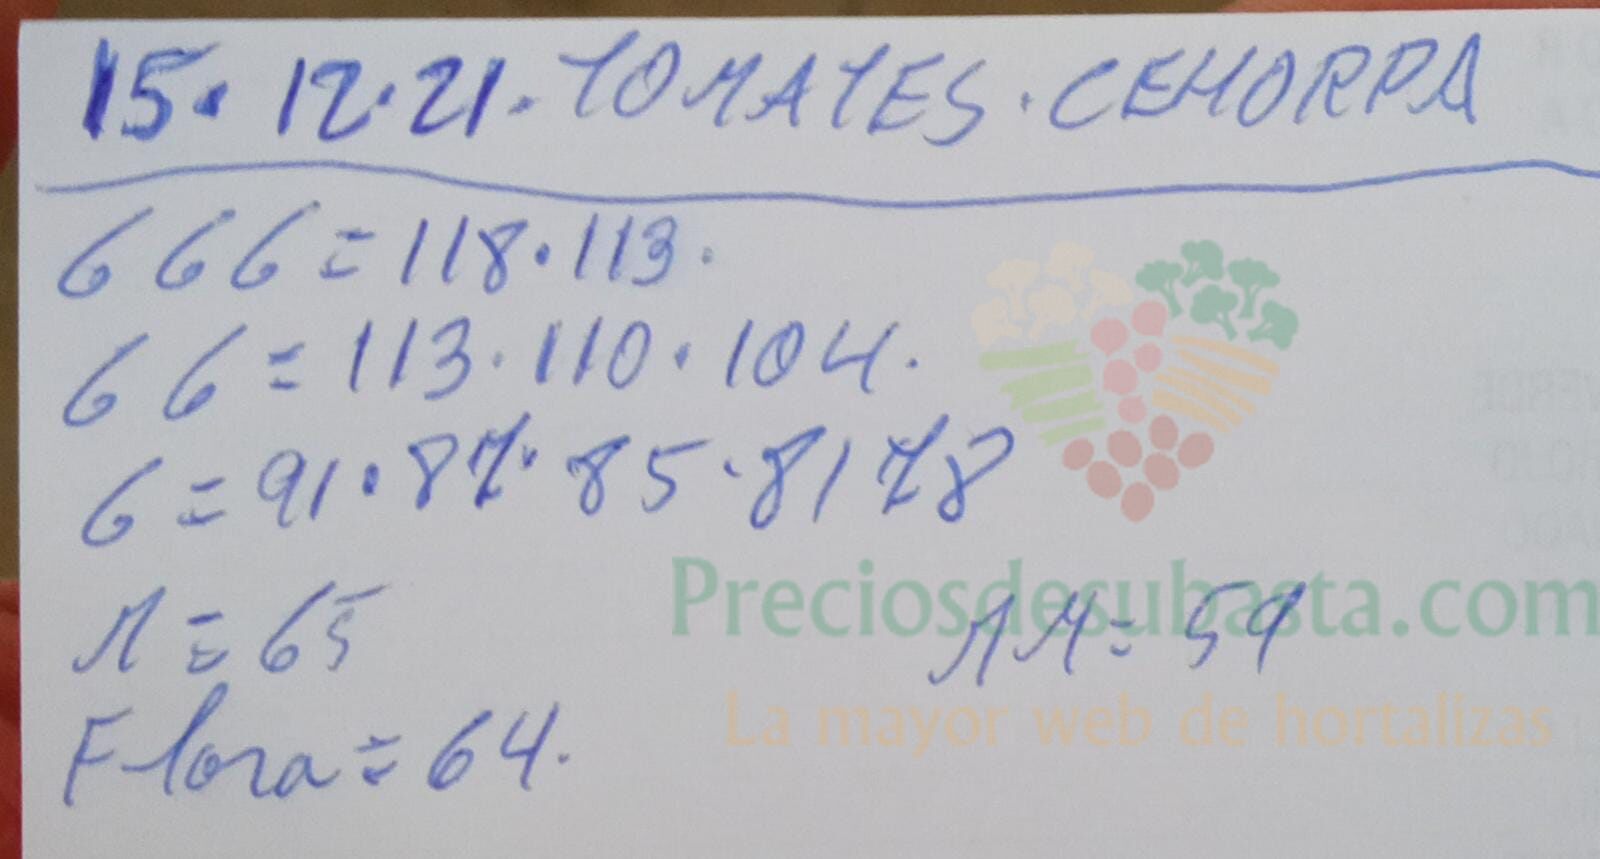 15. 12. 21. TOMATES. CEHORPA
666 = 118. 113.
66 = 113. 110. 104.
6 = 91. 87. 85. 81 78
M = 65
MM = 59
Flora = 64.
Preciosdesubasta.com
La mayor web de hortalizas